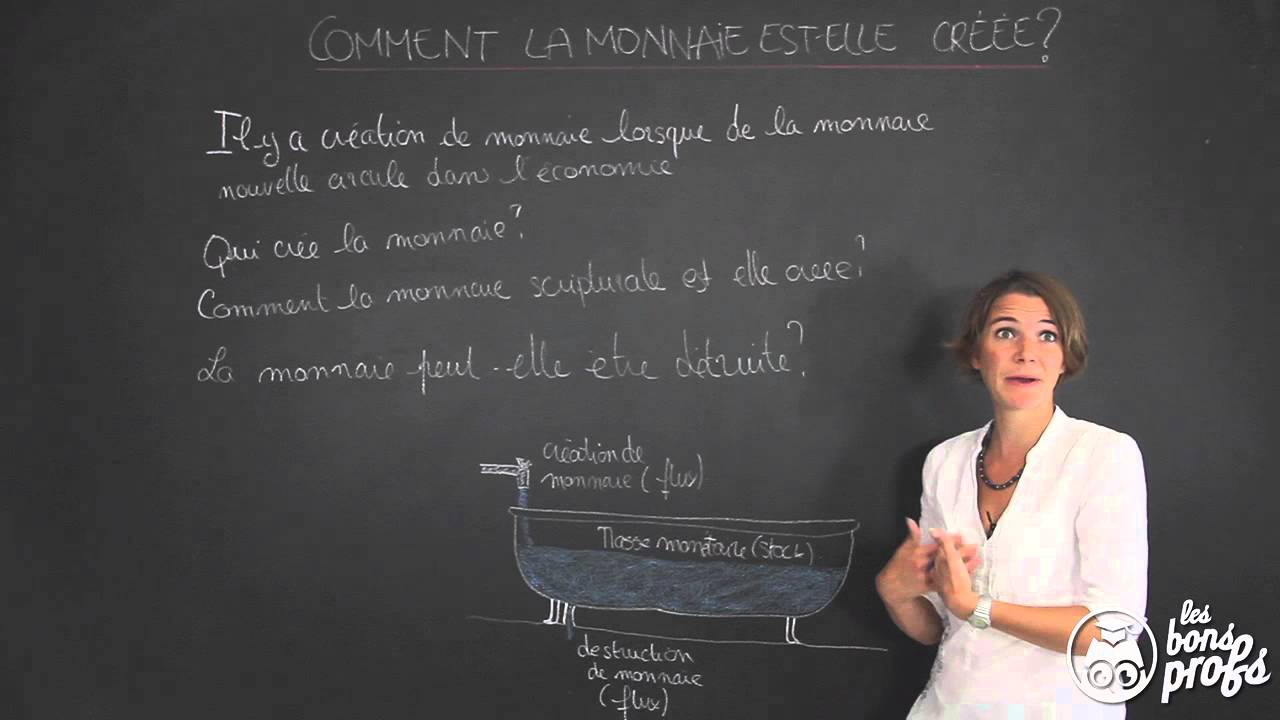 COMMENT LA MONNAIE EST-ELLE CRÉÉE?
Il y a création de monnaie lorsque de la monnaie
nouvelle circule dans l'économie
Qui crée la monnaie?
Comment la monnaie scripturale est elle créée?
La monnaie peut-elle être détruite?
création de
monnaie (flux)
Masse monétaire (stock)
destruction
de monnaie
(flux)
les
bons
profs